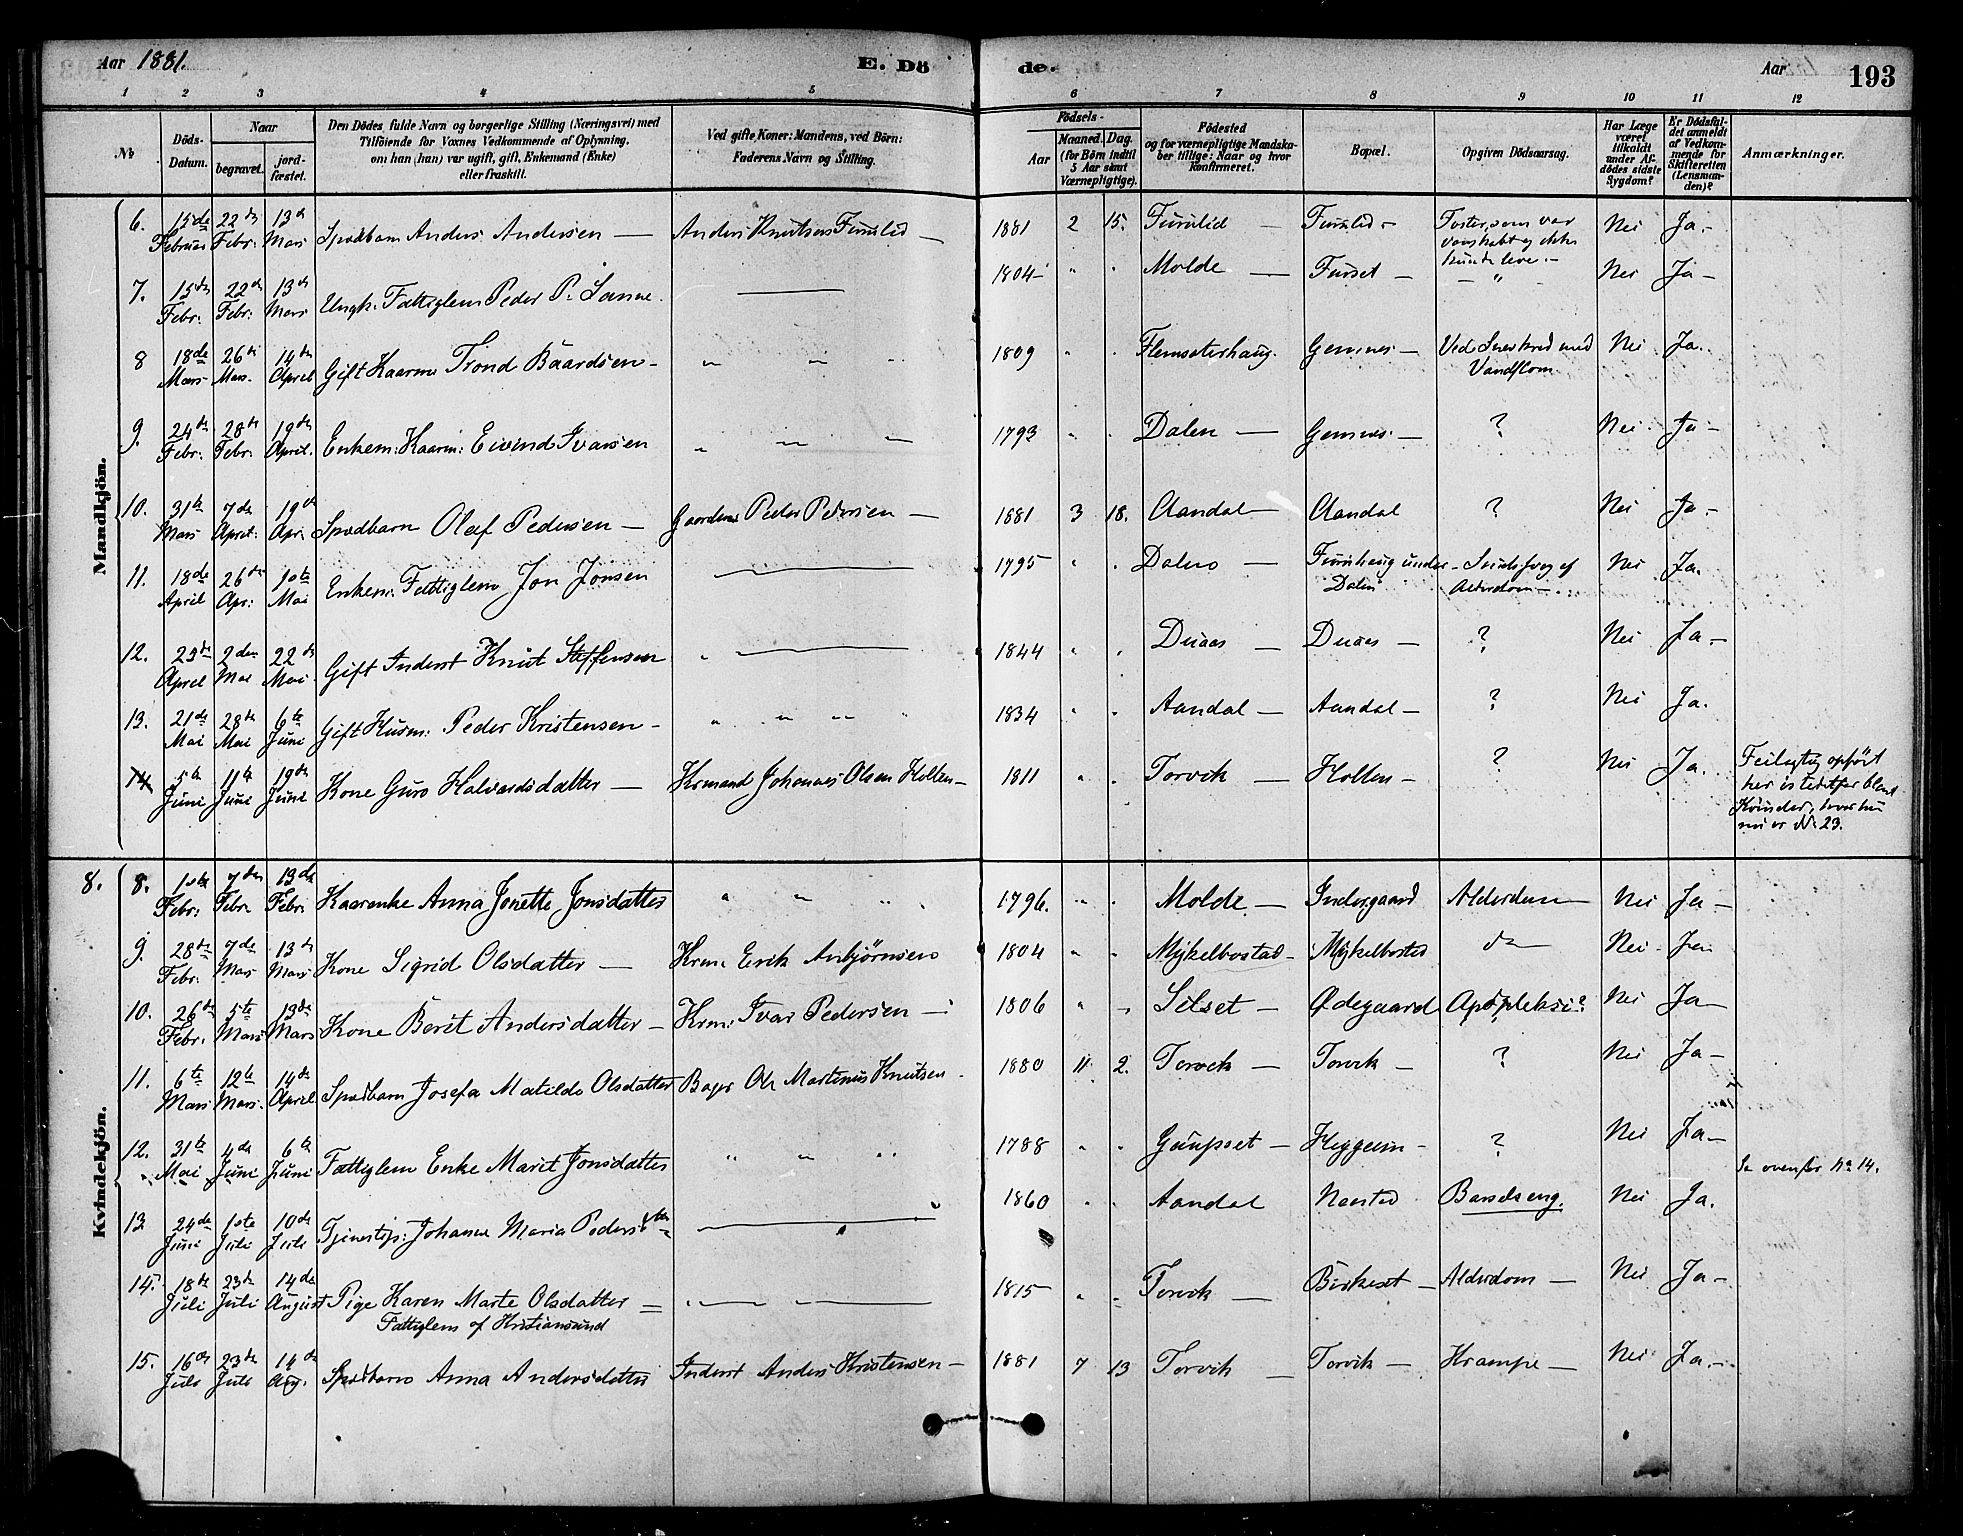 Aar 1881. E. Dö de. Aar 193
1 2 3 4 5 6 7 8 9 10 11 12
№ Döds-Datum. Naar begravet. jordfæstet. Den Dödes fulde Navn og borgerlige Stilling (Næringsvei) med Tilföiende for Voxnes Vedkommende af Oplysning, om han (hun) var ugift, gift, Enkemand (Enke) eller fraskilt. Ved gifte Koner: Mandens, ved Börn: Faderens Navn og Stilling. Födsels- Aar Maaned. Dag. (for Börn indtil 5 Aar samt Værnepligtige). Födested og for værnepligtige Mandskaber tillige: Naar og hvor konfirmeret. Bopæl. Opgiven Dödsaarsag. Har Læge været tilkaldt under Afdödes sidste Sygdom? Er Dödsfaldet anmeldt af Vedkommende for Skifteretten (Lensmanden)? Anmærkninger.
Mandkjön.
6. 15de Februar 22de Febr. 13de Mars Spædbarn Anders Andersen — Anders Knutsen Furulid — 1881 2 15. Furulid — Furulid — Foster, som var vanskabt og ikke kunde leve. — Nei Ja. —
7. 15de Febr. 22de Febr. 13de Mars Ungk. Fattiglem Peder P. — 1804 " " Molde — Furset — " Nei Ja —
8 18de Mars 26de Mars. 14de April Gift Kaarm. Trond Baardsen — " " " 1809 " " Flemsæterhaug. Gemnes — Ved Sneskred med Vandflom Nei Ja.
9. 24de Febr. 28de Febr. 19de April. Enkem: Kaarm: Eivind Ivarsen " " " 1793 " " Dalen — Gemnes. — ? Nei. Ja —
10. 31te Mars 7de April. 19de Apr. Spædbarn Olaf Pedersen — Gaardm. Peder Pedersen — 1881 3 18. Aandal — Aandal ? Nei Ja. —
11. 18de April 26de Apr. 10te Mai Enkem: Fattiglem Jon Jonsen — 1795 " " Dalen — Furuhaug under Dalen af Alderdom — Nei Ja.
12. 23de April 2den Mai 22de Mai Gift Inderst Knut Steffensen " — 1844 " " Duaas — Duaas — ? Nei Ja —
13. 21de Mai 28de Mai 6te Juni Gift Husm: Peder Kristensen — " " " " 1834 " " Aandal — Aandal — ? Nei Ja.
14 5te Juni 11te Juni 19de Juni Kone Guro Halvardsdatter — Krmand Johannes Olsen Holten — 1811 " " Torvik — Holten — ? Nei Ja. Feilagtig opfört her istedetfor blant Kvinder, hvor hun nu er № 23.
Kvindekjön.
8. 8. 1ste Febr. 7de Febr. 13de Febr. Kaarenke Anna Jonette Jonsdatter " " " 1796. " " Molde. — Indergaard Alderdom — Nei Ja —
9. 28de Febr. 7de Mars 13de Mars Kone Sigrid Olsdatter — Krm. Erik Anbjørnsen 1804 " " Mykelbostad — Mykelbostad do — Nei Ja
10. 26de Febr. 5te Mars 13de Mars Kone Berit Andersdatter — Krm: Ivar Pedersen — 1806 " " Silset — Ødegaard Apoplexsi? Nei Ja —
11. 6te Mars 12te Mars. 14de April Spædbarn Josefa Matilde Olsdatter Bager Ole Martinus Knutsen 1880 11 2. Torvik — Torvik — ? Nei Ja —
12. 31te Mai 4de Juni 6te Juni Fattiglem Enke Marit Jonsdatter " " " 1788 " " Gaupset — Heggeim — ? Nei Ja — Se ovenfor № 14.
13 24de Juni 1ste Juli 10de Juli Tjenestep: Johanne Maria Pedersdtr — 1860 " " Aandal Naasted Barselseng. Nei Ja.
14. 18de Juli 23de Juli 14de August Pige Karen Marte Olsdatter — " " — 1815 " " Torvik — Birkeset — Alderdom — Nei Ja —
Fattiglem af Kristiansund
15. 16de Juli 23de Juli 14de Aug. Spædbarn Anna Andersdatter Inderst Anders Kristensen — 1881 7 13 Torvik — Torvik — Krampe — Nei Ja. —